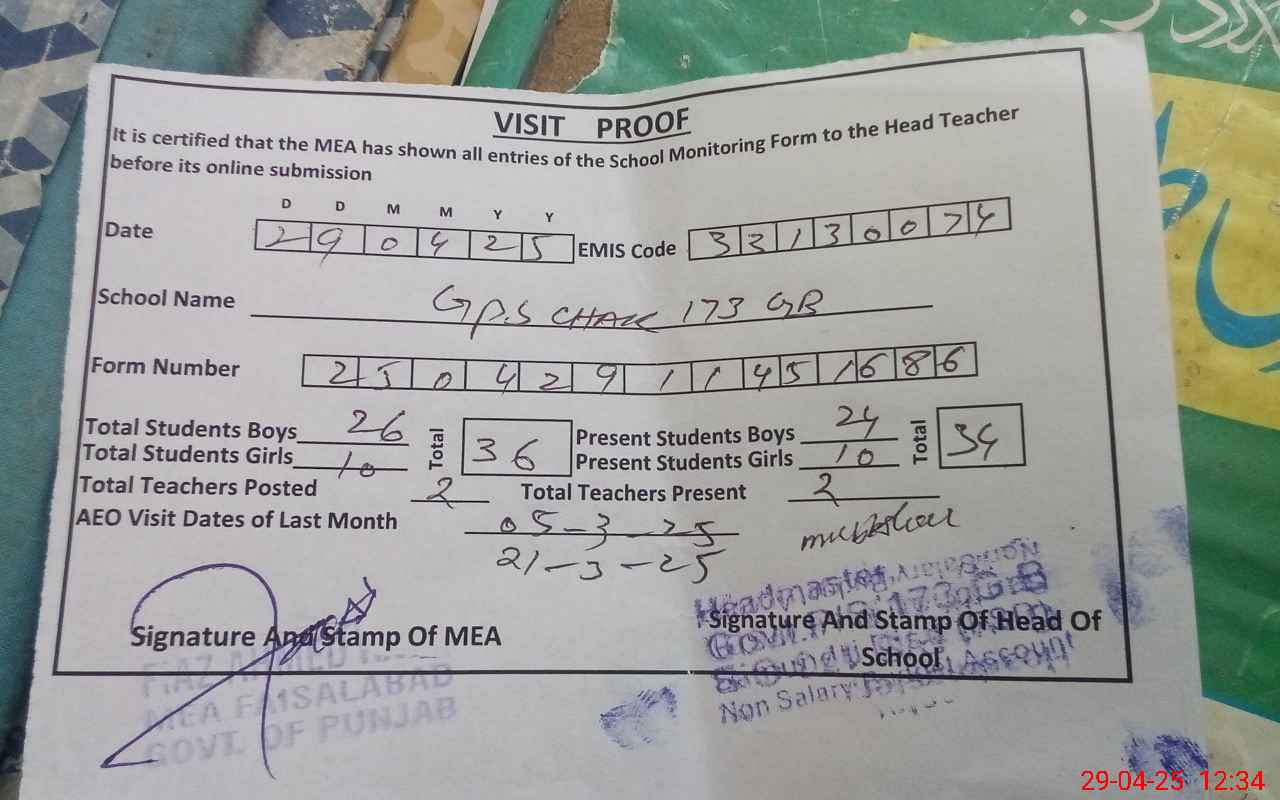 VISIT PROOF
It is certified that the MEA has shown all entries of the School Monitoring Form to the Head Teacher
before its online submission
D D M M Y Y
Date 2 9 0 4 2 5 EMIS Code 3 3 1 3 0 0 7 4
School Name GPS CHAK 173 GB
Form Number 2 5 0 4 2 9 1 1 4 5 1 6 8 6
Total Students Boys 26 Total 36 Present Students Boys 24 Total 34
Total Students Girls 10 Present Students Girls 10
Total Teachers Posted 2 Total Teachers Present 2
AEO Visit Dates of Last Month 05-3-25
21-3-25
Headmaster
Signature And Stamp Of MEA Signature And Stamp Of Head Of
School
Non Salary Account
MEA FAISALABAD
GOVT. OF PUNJAB
29-04-25 12:34